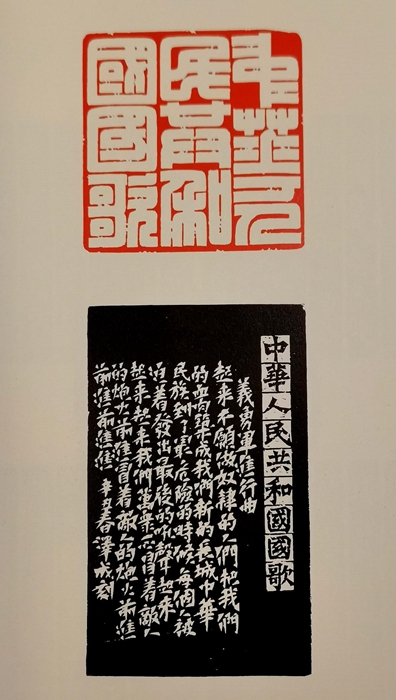 中華人
民共和
國國歌
中華人民共和國國歌
義勇軍進行曲
起來不願做奴隸的人們把我們
的血肉築成我們新的長城中華
民族到了最危險的時候每個人被
迫着發出最後的吼聲起來
起來起來我們萬衆一心冒着敵人
的炮火前進冒着敵人的炮火前進
前進前進進 辛丑春澤成刻